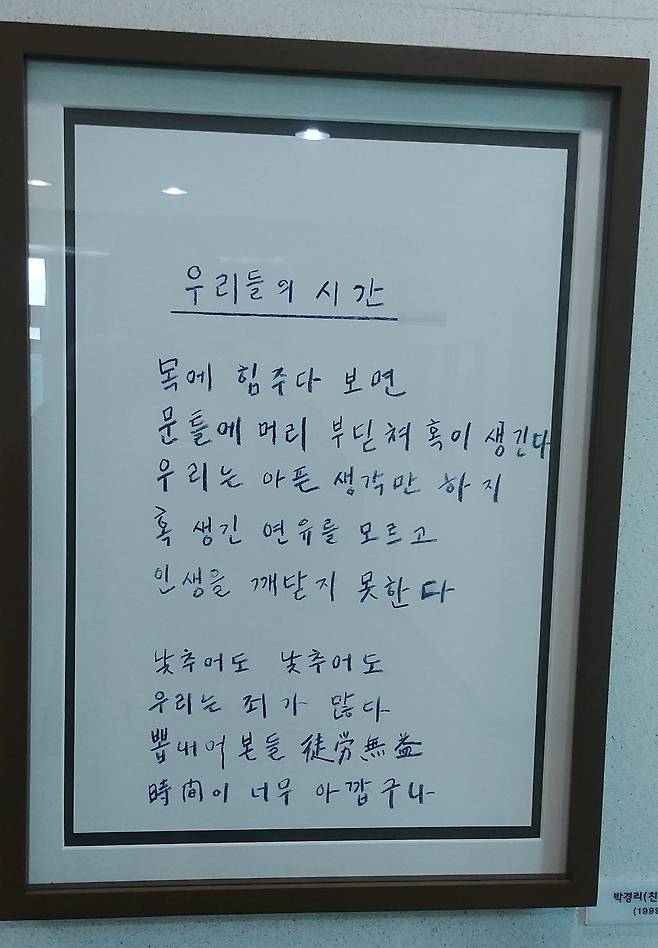 우리들의 시간
목에 힘주다 보면
문틀에 머리 부딪쳐 혹이 생긴다
우리는 아픈 생각만 하지
혹 생긴 연유를 모르고
인생을 깨닫지 못한다
낮추어도 낮추어도
우리는 죄가 많다
뽑내어 본들 徒労無益
時間이 너무 아깝구나
박경리(친
(1999